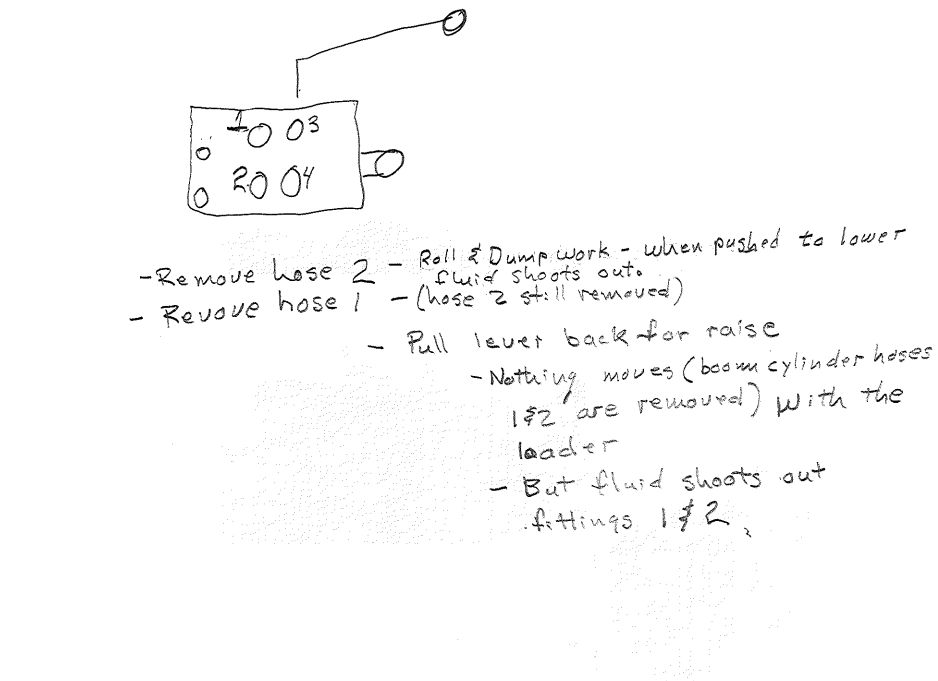 1 3
2 4
- Remove hose 2 - Roll & Dump work - when pushed to lower
fluid shoots out.
- Revove hose 1 - (hose 2 still removed)
- Pull lever back for raise
- Nothing moves (boom cylinder hoses
1 & 2 are removed) with the
loader
- But fluid shoots out
fittings 1 & 2.